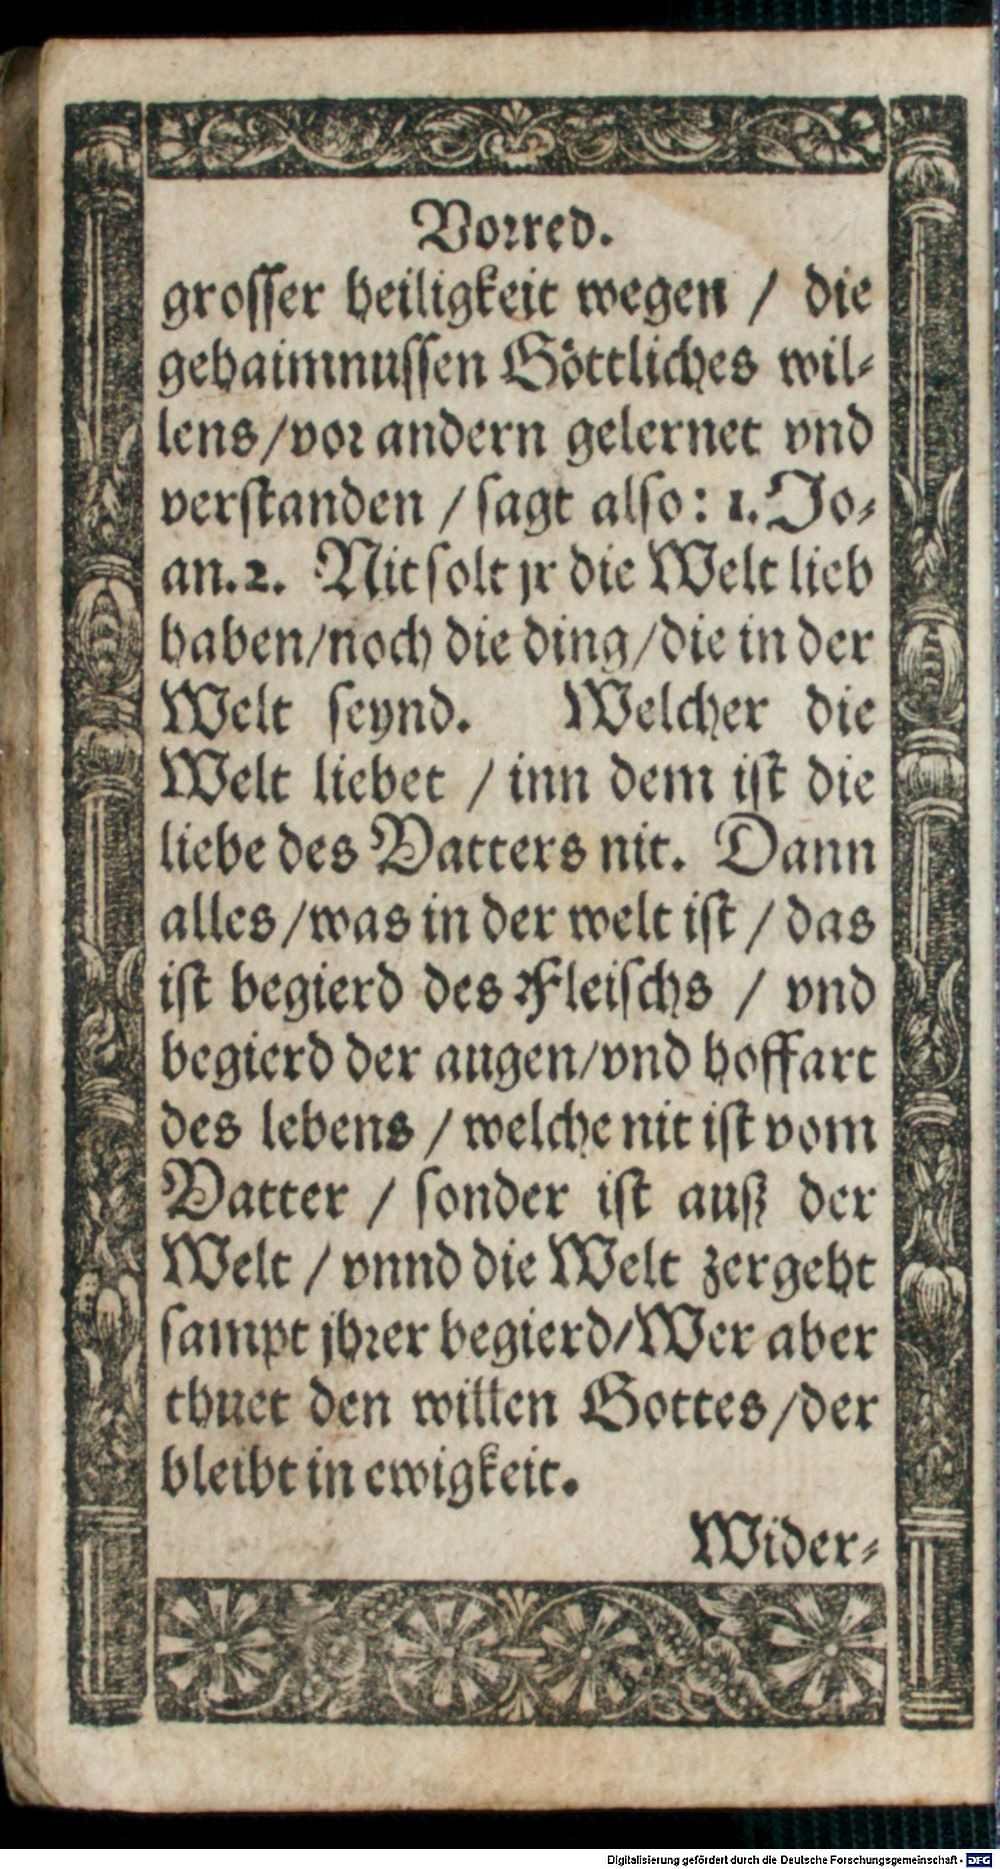 Vorred.
grosser heiligkeit wegen / die
gehaimnussen Göttliches wil-
lens/vor andern gelernet vnd
verstanden / sagt also: 1. Jo-
an.2. Nit solt jr die Welt lieb
haben/noch die ding/die in der
Welt seynd. Welcher die
Welt liebet / inn dem ist die
liebe des Vatters nit. Dann
alles/was in der welt ist / das
ist begierd des Fleischs / vnd
begierd der augen/vnd hoffart
des lebens / welche nit ist vom
Vatter / sonder ist auß der
Welt / vnnd die Welt zergeht
sampt jhrer begierd/Wer aber
thuet den willen Gottes/der
bleibt in ewigkeit.
Wider-
Digitalisierung gefördert durch die Deutsche Forschungsgemeinschaft - DFG